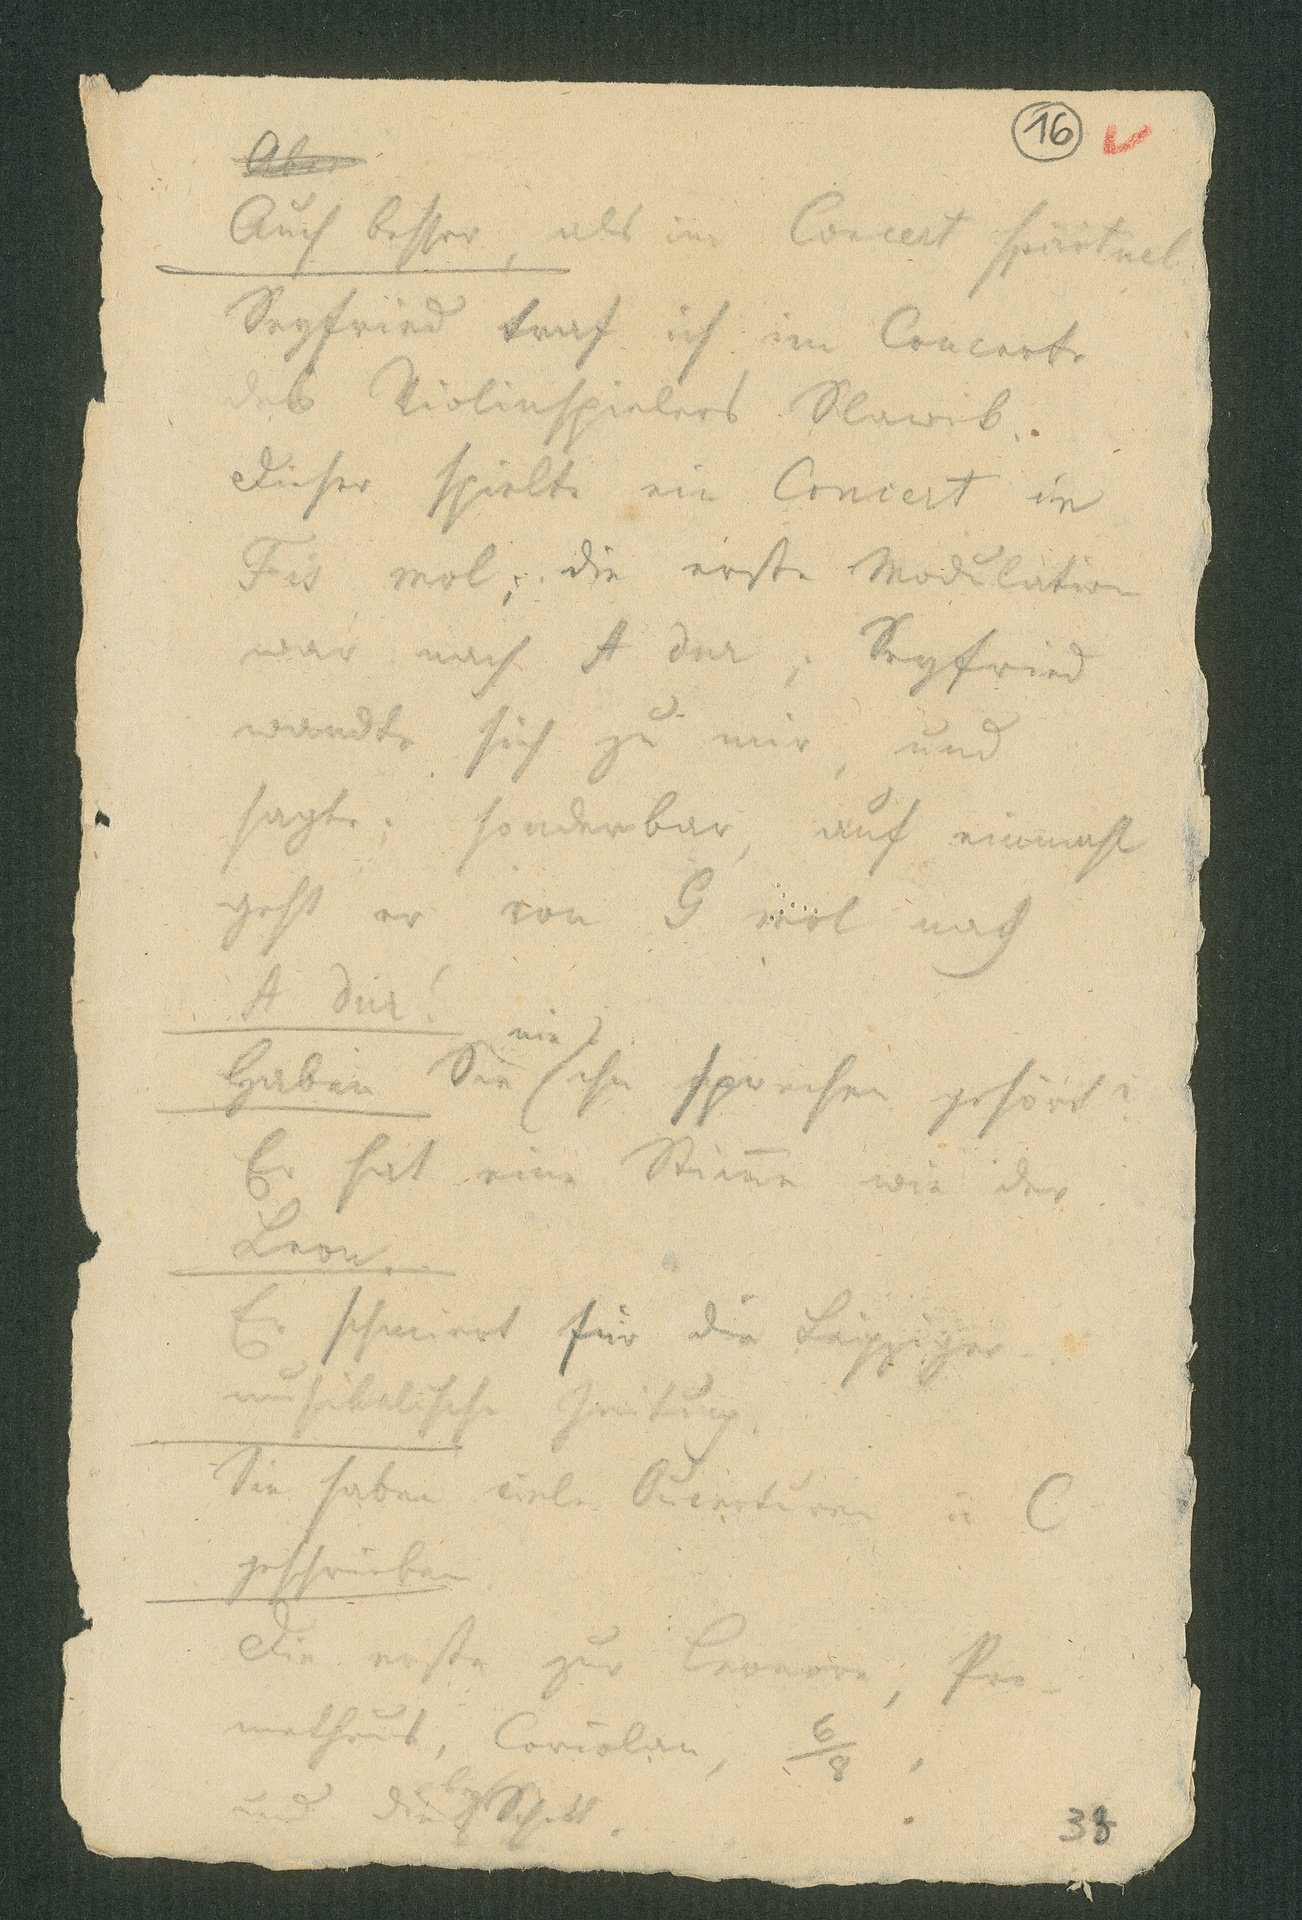 16
Auch besser, als im Concert spirituel
Seyfried traf ich im Concerte
des Violinspielers Slawik.
Dieser spielte ein Concert in
Fis mol; die erste Modulation
war nach A dur; Seyfried
wandte sich zu mir, und
sagte: sonderbar, auf einmahl
geht er von G mol nach
A dur!
nie
Haben Sie ihn sprechen gehört?
Er hat eine Stim̅e wie der
Leon.
Er schmiert für die Leipziger
musikalische Zeitung.
Sie haben viele Ouverturen in C
geschrieben.
Die erste zur Leonore, Pro-
metheus, Coriolan, 6/8,
und die bey Schott.
38